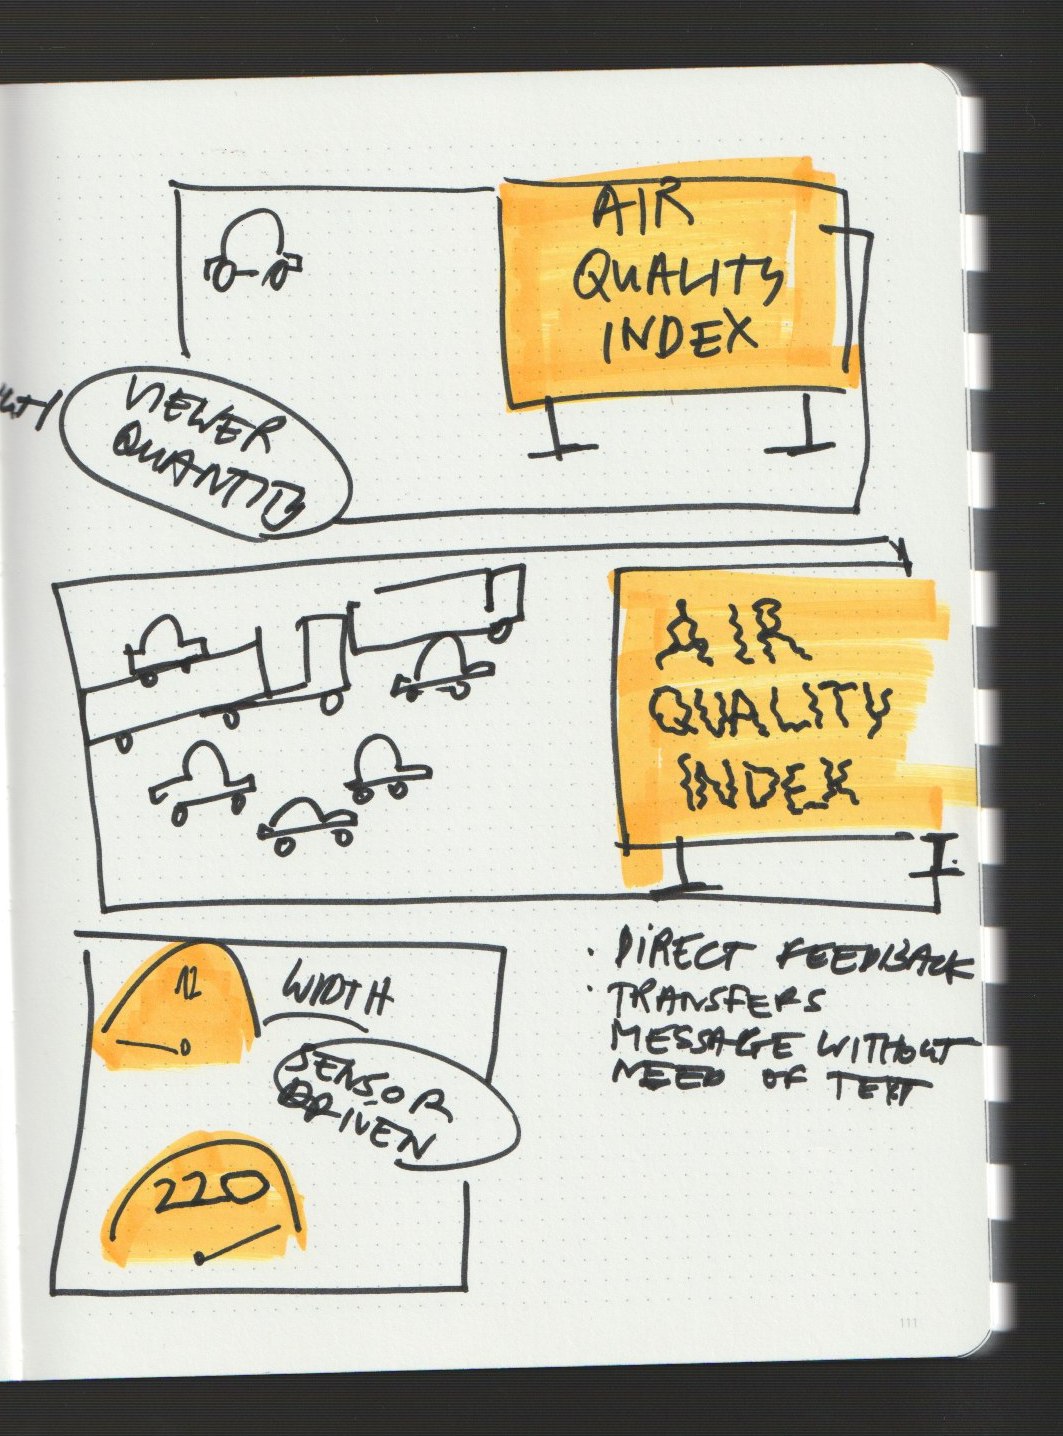 AIR
QUALITY
INDEX
VIEWER
QUANTITY
AIR
QUALITY
INDEX
12
WIDTH
SENSOR
DRIVEN
220
· DIRECT FEEDBACK
· TRANSFERS
MESSAGE WITHOUT
NEED OF TEXT
111